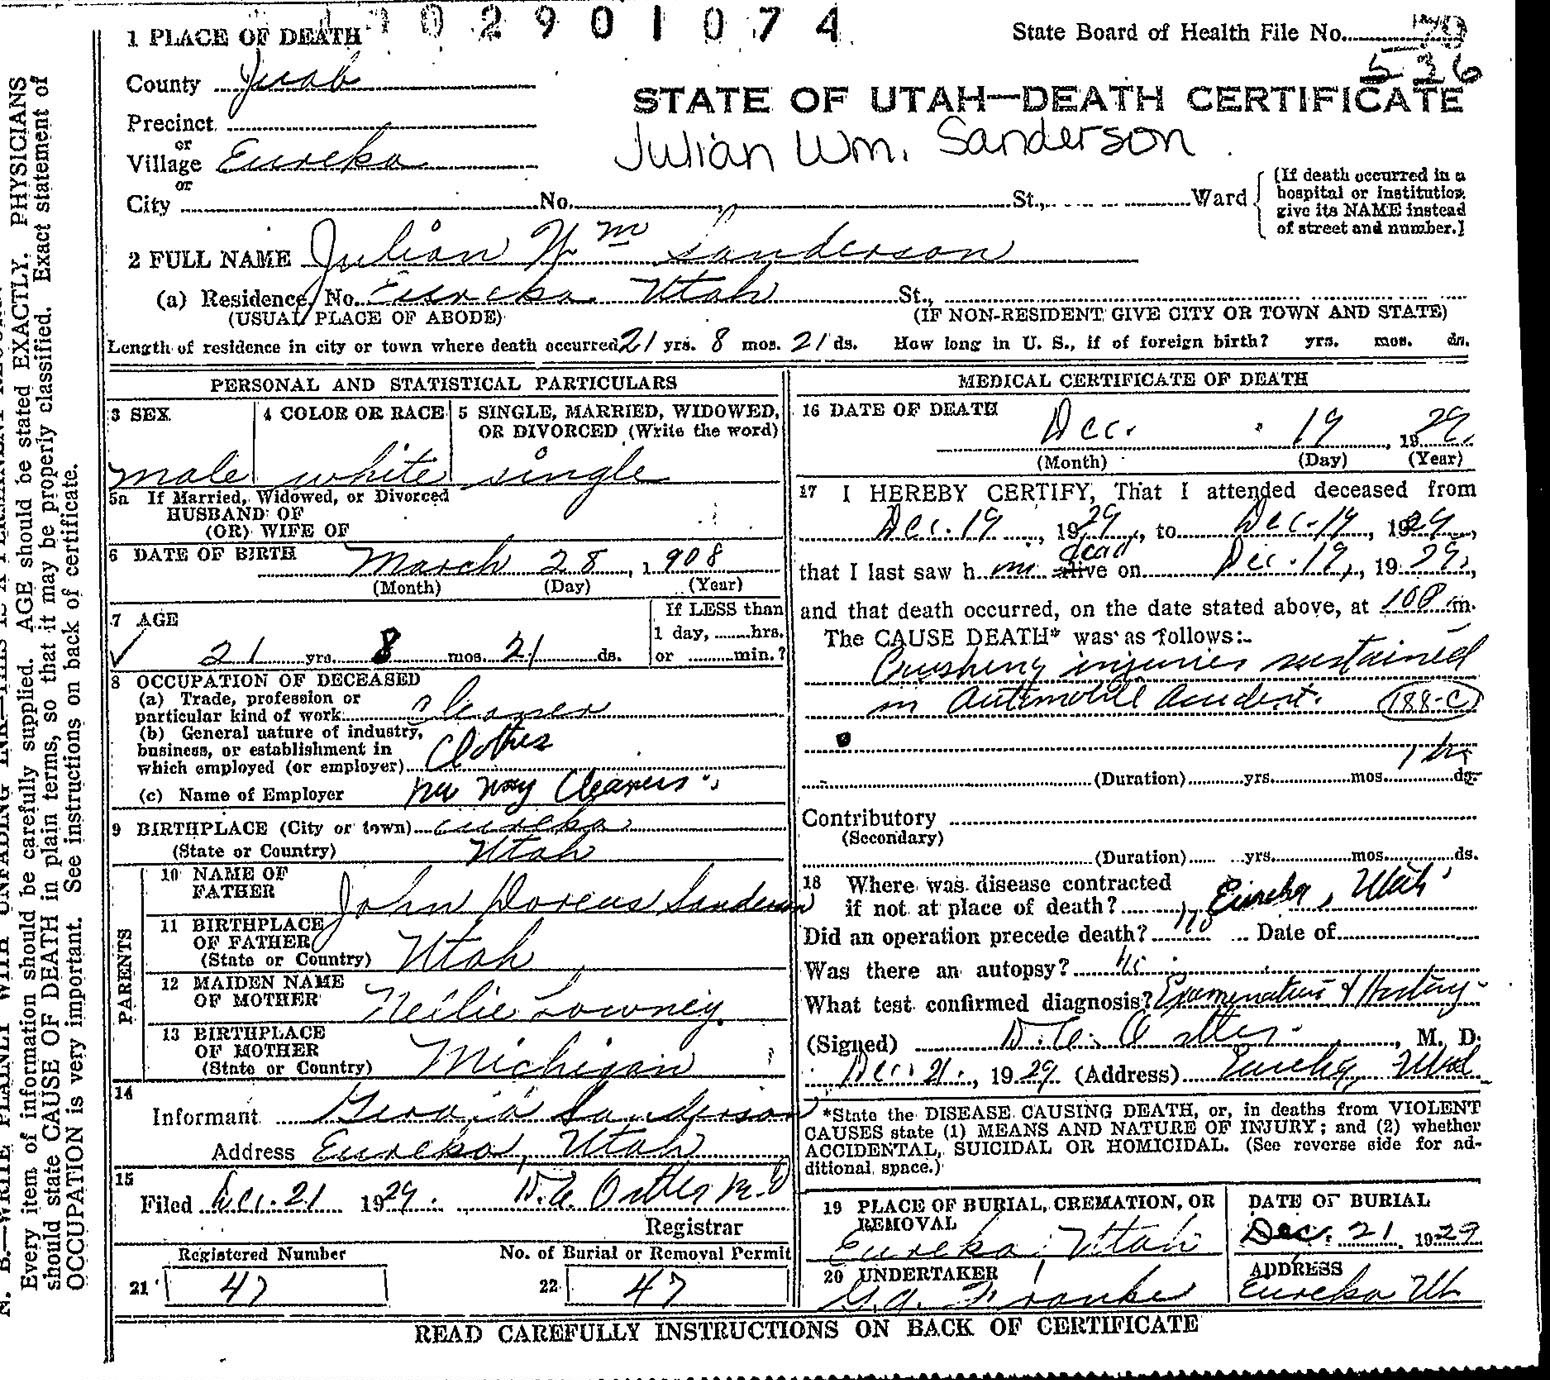 1 PLACE OF DEATH 02901074 State Board of Health File No. 70
536
County Juab
STATE OF UTAH—DEATH CERTIFICATE
Precinct
or
Village Eureka
Julian Wm. Sanderson
or
City No. St., Ward
(If death occurred in a
hospital or institution,
give its NAME instead
of street and number.]
2 FULL NAME Julian Wm Sanderson
(a) Residence, No. Eureka Utah St.,
(USUAL PLACE OF ABODE) (IF NON-RESIDENT GIVE CITY OR TOWN AND STATE)
Length of residence in city or town where death occurred 21 yrs. 8 mos. 21 ds. How long in U. S., if of foreign birth? yrs. mos. ds.
PERSONAL AND STATISTICAL PARTICULARS
3 SEX 4 COLOR OR RACE 5 SINGLE, MARRIED, WIDOWED,
OR DIVORCED (Write the word)
male white single
5a If Married, Widowed, or Divorced
HUSBAND OF
(OR) WIFE OF
6 DATE OF BIRTH March 28, 1908
(Month) (Day) (Year)
7 AGE If LESS than
1 day, hrs.
21 yrs. 8 mos. 21 ds. or min.?
8 OCCUPATION OF DECEASED
(a) Trade, profession or
particular kind of work cleaner
(b) General nature of industry,
business, or establishment in
which employed (or employer) Clothes
(c) Name of Employer New Way Cleaners
9 BIRTHPLACE (City or town) Eureka
(State or Country) Utah
PARENTS
10 NAME OF
FATHER John Doreus Sanderson
11 BIRTHPLACE
OF FATHER
(State or Country) Utah
12 MAIDEN NAME
OF MOTHER Neilie Lowney
13 BIRTHPLACE
OF MOTHER
(State or Country) Michigan
14
Informant Sanderson
Address Eureka, Utah
15
Filed Dec. 21 1929. D.C. Ostler M.D
Registrar
Registered Number No. of Burial or Removal Permit
21 47 22 47
MEDICAL CERTIFICATE OF DEATH
16 DATE OF DEATH
Dec. 19, 1929.
(Month) (Day) (Year)
17 I HEREBY CERTIFY, That I attended deceased from
Dec. 19, 1929, to Dec. 19, 1929,
dead
that I last saw him alive on Dec. 19, 1929,
and that death occurred, on the date stated above, at 100 P.m.
The CAUSE DEATH* was as follows:
Crushing injuries sustained
in Automobile accident. 188-C
1 hr
(Duration) yrs. mos. ds.
Contributory
(Secondary)
(Duration) yrs. mos. ds.
18 Where was disease contracted
if not at place of death? Eureka, Utah
Did an operation precede death? no Date of
Was there an autopsy? no
What test confirmed diagnosis? Examination & History
(Signed) D.C. Ostler, M. D.
Dec. 21, 1929 (Address) Eureka, Utah
*State the DISEASE CAUSING DEATH, or, in deaths from VIOLENT
CAUSES state (1) MEANS AND NATURE OF INJURY; and (2) whether
ACCIDENTAL, SUICIDAL OR HOMICIDAL. (See reverse side for ad-
ditional space.)
19 PLACE OF BURIAL, CREMATION, OR
REMOVAL
Eureka Utah
DATE OF BURIAL
Dec. 21 1929
20 UNDERTAKER
G.A. Franke
ADDRESS
Eureka Ut
READ CAREFULLY INSTRUCTIONS ON BACK OF CERTIFICATE
Every item of information should be carefully supplied. AGE should be stated EXACTLY. PHYSICIANS
should state CAUSE OF DEATH in plain terms, so that it may be properly classified. Exact statement of
OCCUPATION is very important. See instructions on back of certificate.